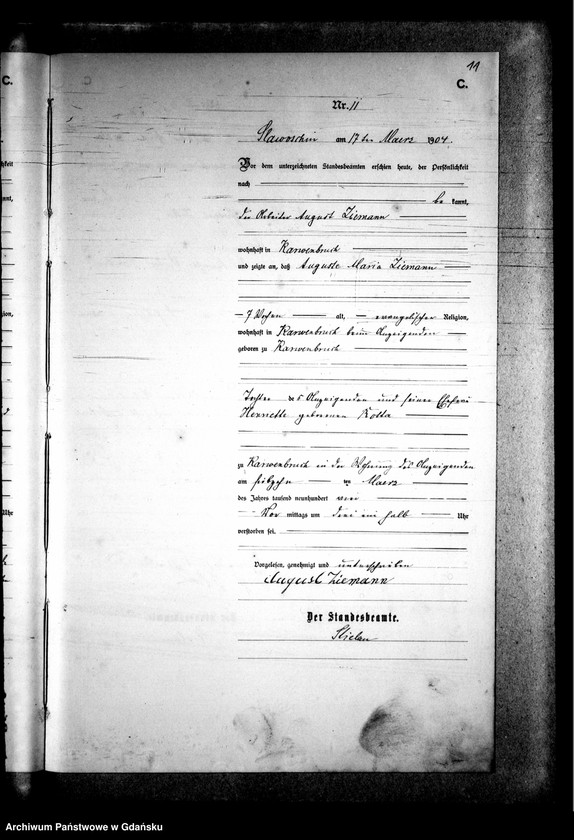 11
C.
C.
Nr. 11
Slawoschin am 17ten Maerz 1904.
Vor dem unterzeichneten Standesbeamten erschien heute, der Persönlichkeit
nach
be kannt,
der Arbeiter August Ziemann
wohnhaft in Karwenbruch
und zeigte an, daß Auguste Maria Ziemann
7 Wochen alt, evangelischer Religion,
wohnhaft in Karwenbruch beim Anzeigenden
geboren zu Karwenbruch
Tochter des Anzeigenden und seiner Ehefrau
geborenen
zu Karwenbruch in der Wohnung des Anzeigenden
am ten Maerz
des Jahres tausend neunhundert vier
Vor mittags um drei ein halb Uhr
verstorben sei.
Vorgelesen, genehmigt und unterschrieben
August Ziemann
Der Standesbeamte.
Archiwum Państwowe w Gdańsku